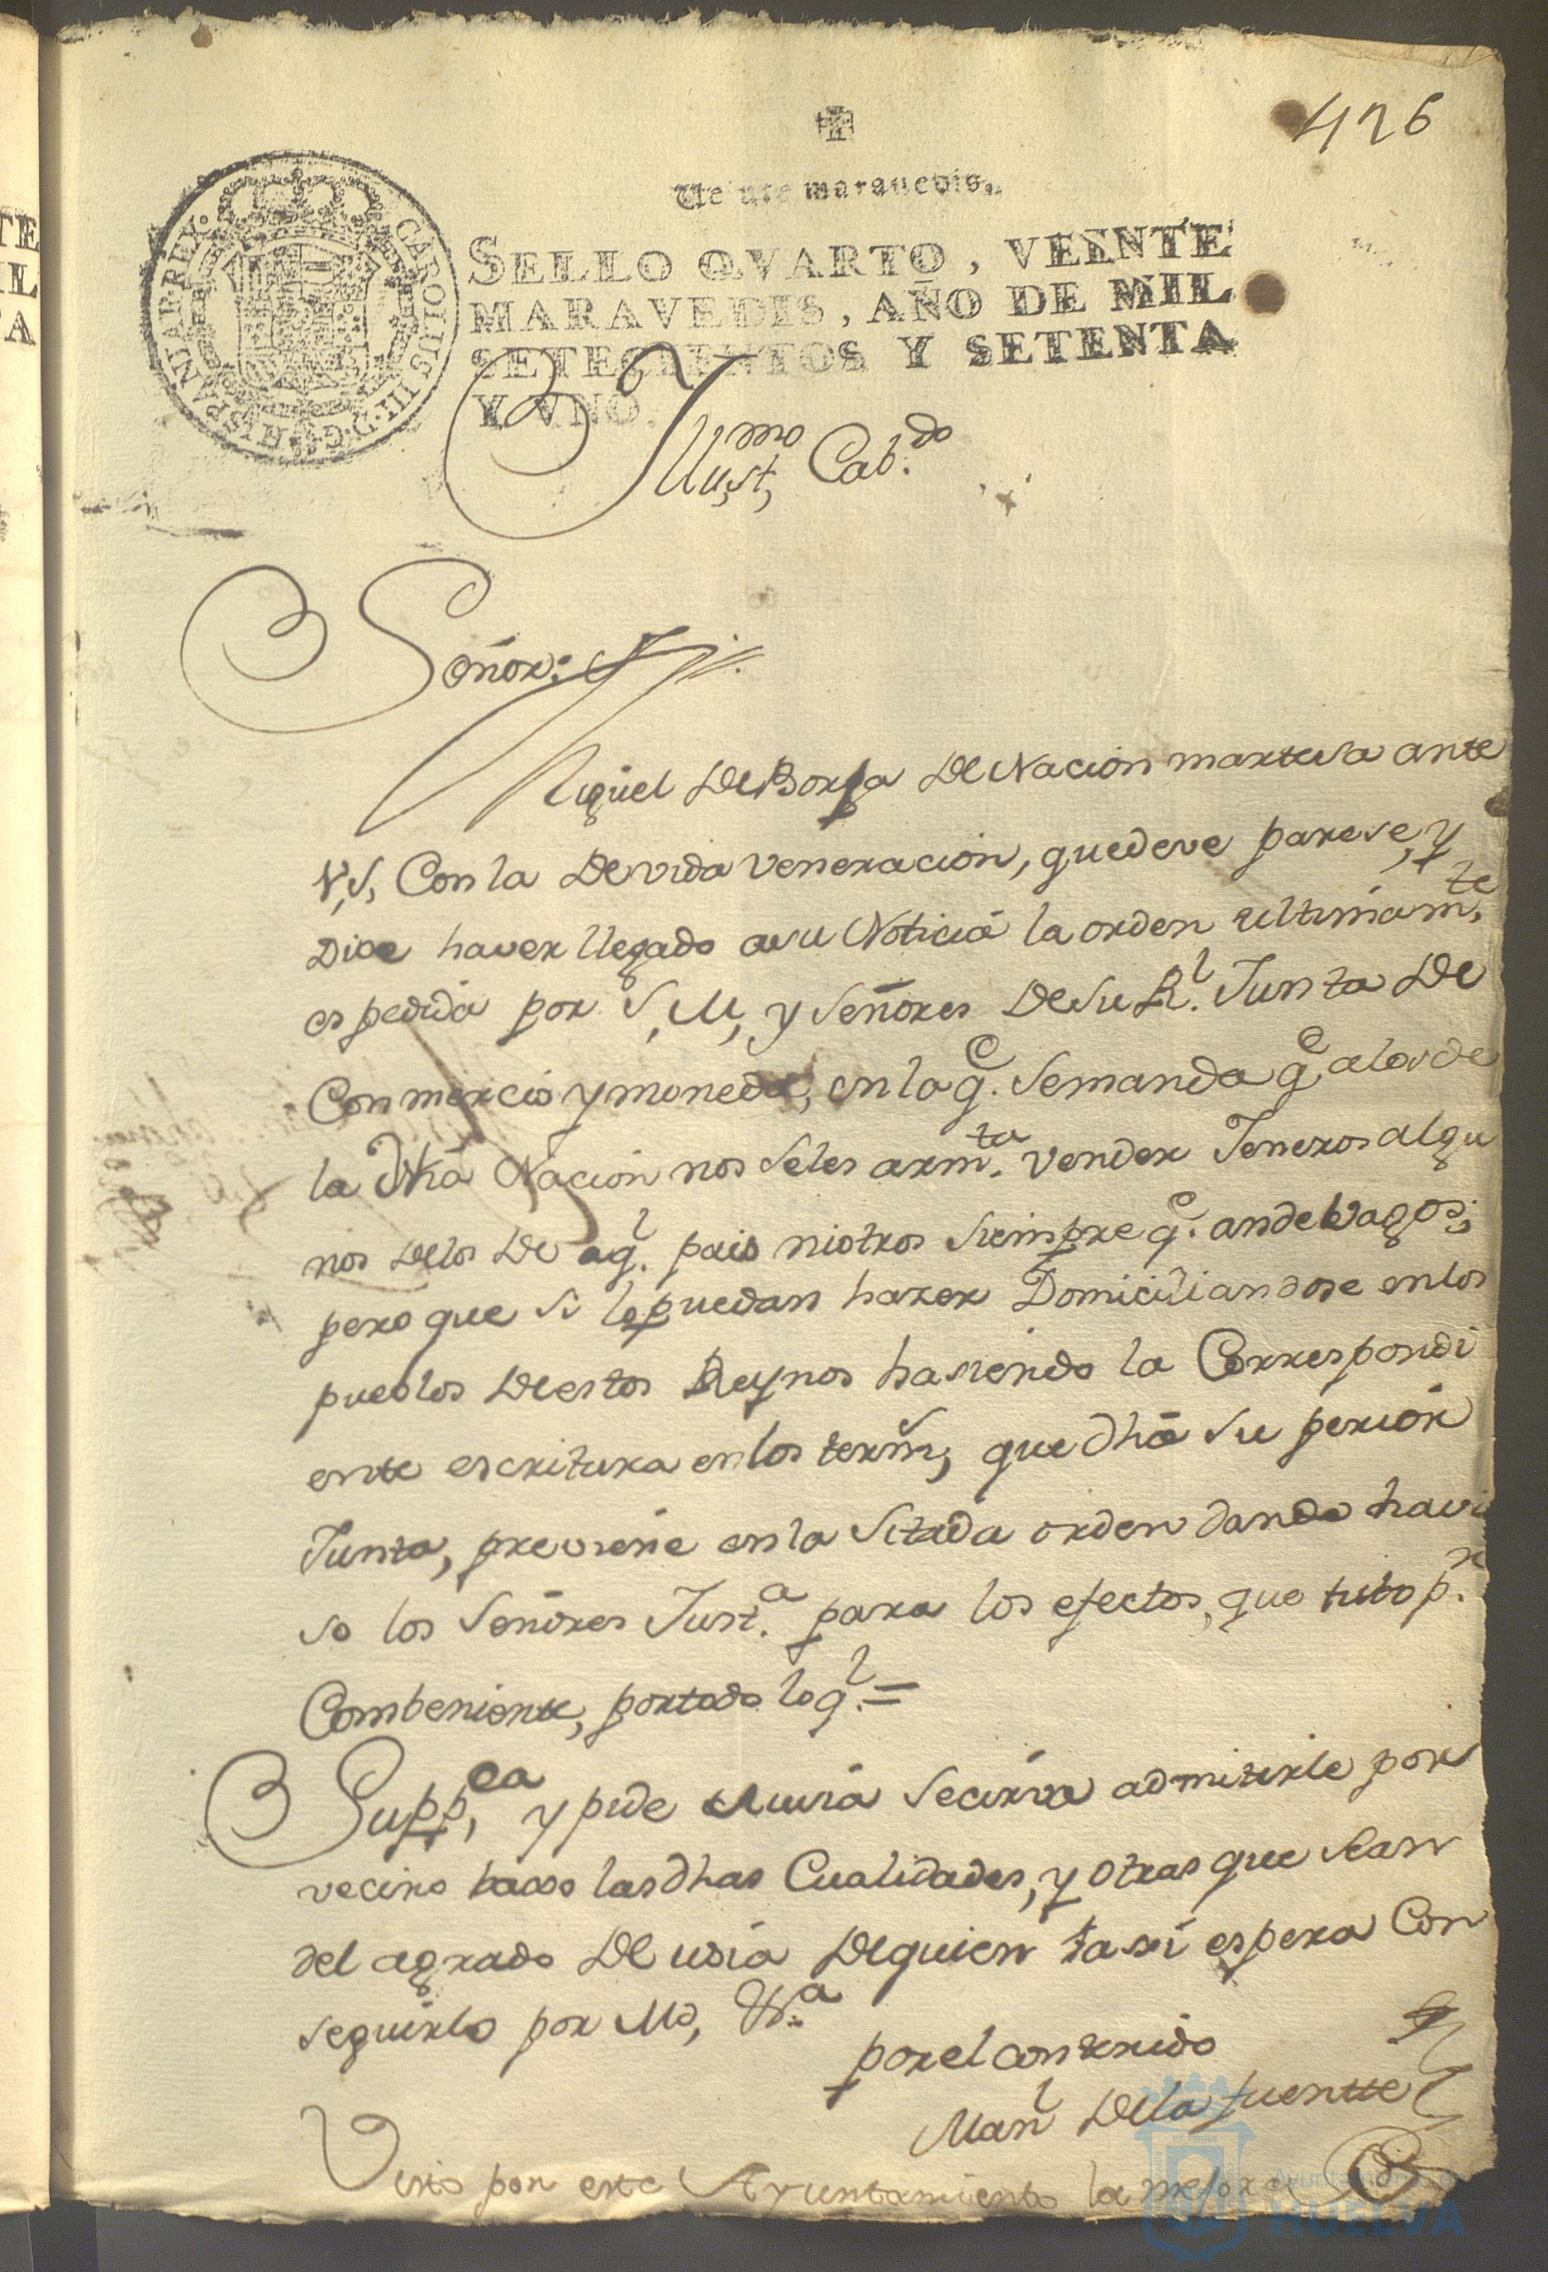 426
Veinte maravedis.
SELLO QVARTO, VEINTE
MARAVEDIS, AÑO DE MIL
SETECIENTOS Y SETENTA
Y VNO.
CAROLUS III. D. G. HISPANIAR. REX.
TE
IL
TA
Yllust,mo Cab.do
Señor:
Miguel De Borja De Nacion martesa ante
V,S, Con la Devida veneracion, quedeve parese, y
Dice haver llegado asu Noticia la orden ultimam,te
espedida por S,M, y señores De su R.l Junta De
Conmercio y moneda, en la q.e semanda q.e alos de
la Dha Nacion nos seles arm.ta vender Jeneros algu
nos Delos De aq.l pais niotros siempre q.e andebagos;
pero que si lo puedan hazer Domiciliandose enlos
pueblos Destos Reynos hasiendo la Correspondi
ente escritura enlos term,s que dha su perior
Junta, previene en la sitada orden dando havi
so los señores Just.a para los efectos, que tubo p.r
Combeniente, portodo lo q.l =
Supp,ca y pide Auuia secirva admitirle por
vecino baxo las dhas Cualidades, y otras que sean
del agrado De usia Dequien tasi espera Con
seguirlo por Md, &.a
por el contenido
Man.l Dela fuentte
Visto por este Ayuntamiento la
Ayuntamiento de
HUELVA